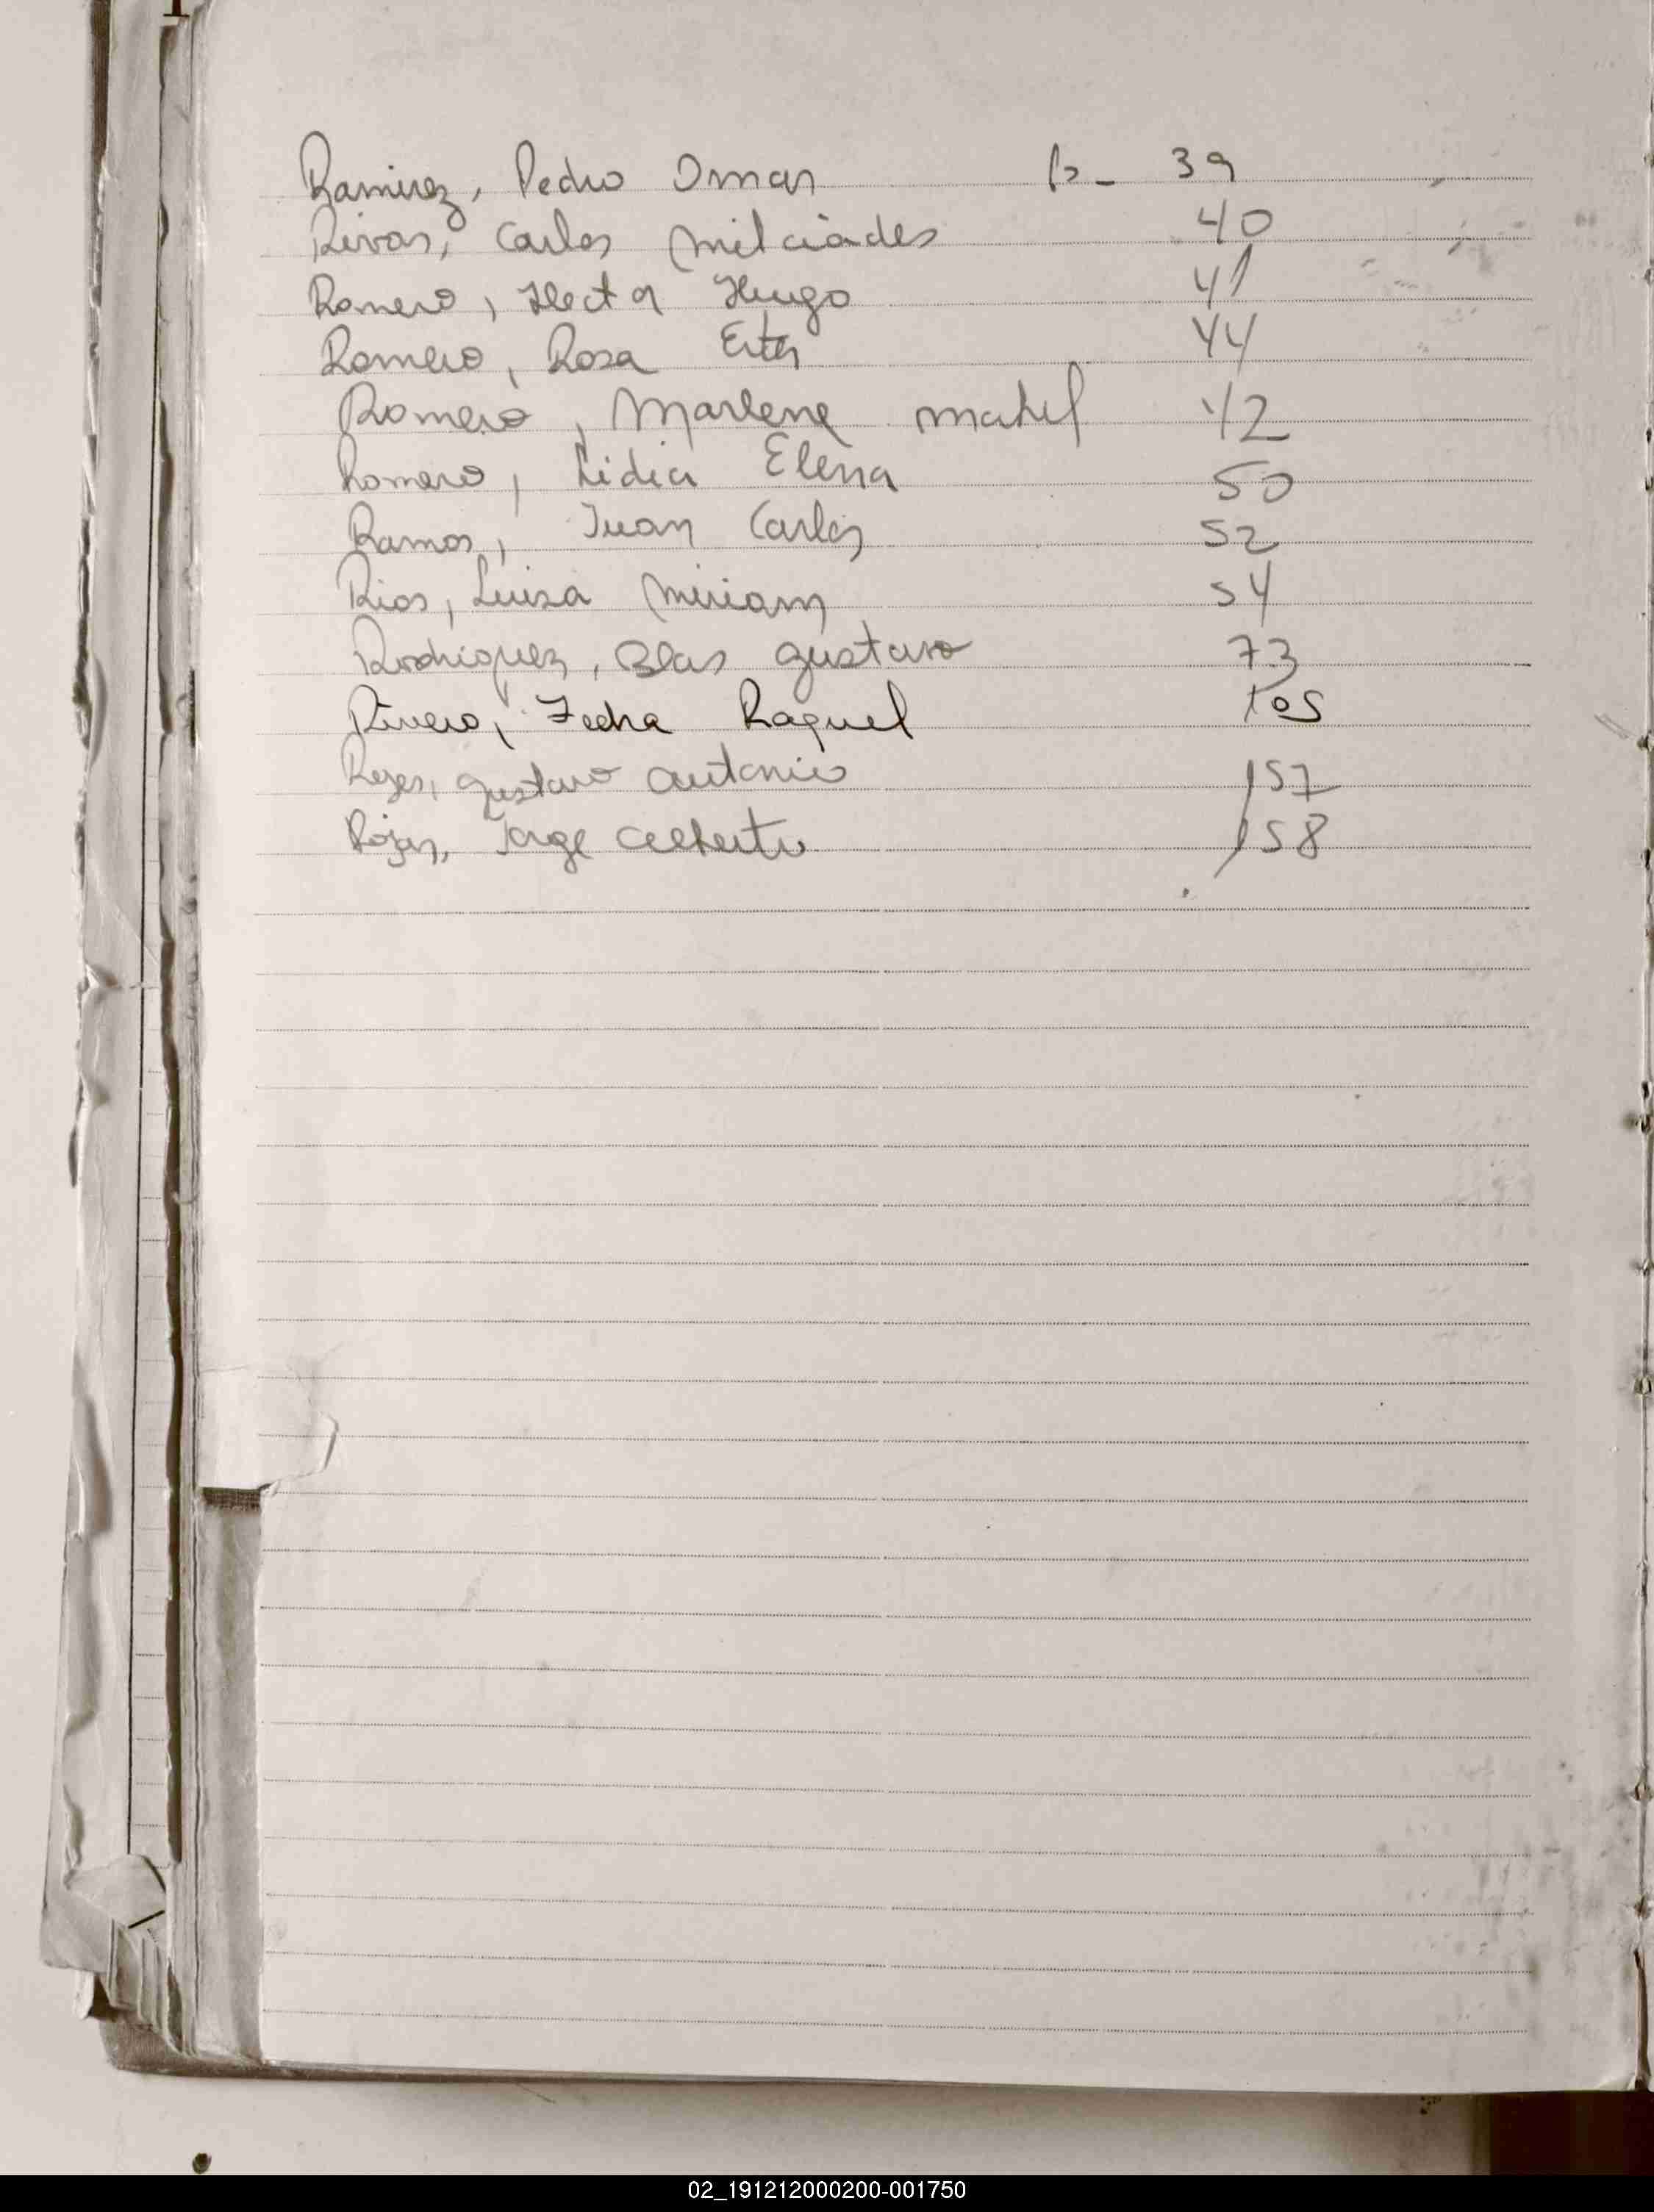 Ramirez, Pedro Omar P- 39
Rivas, Carlos Milciades 40
Romero, Hector Hugo 41
Romero, Rosa Ester 44
Romero, Marlene Mabel 42
Romero, Lidia Elena 50
Ramos, Juan Carlos 52
Rios, Luisa Miriam 54
Rodriguez, Blas Gustavo 73
Rivero, Raquel 105
Reyes, Gustavo Antonio 157
Rojas, Jorge Alberto 158
02_191212000200-001750